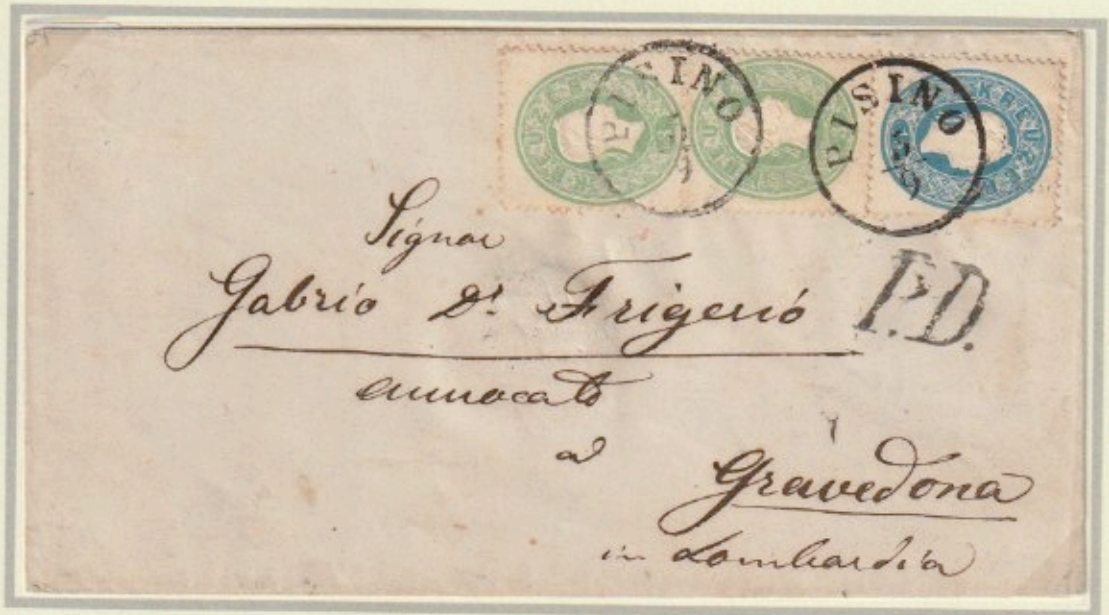 PISINO
PISINO
P.D.
Signor
Gabrio Dr. Frigerió
avvocato
a
Gravedona
in Lombardia